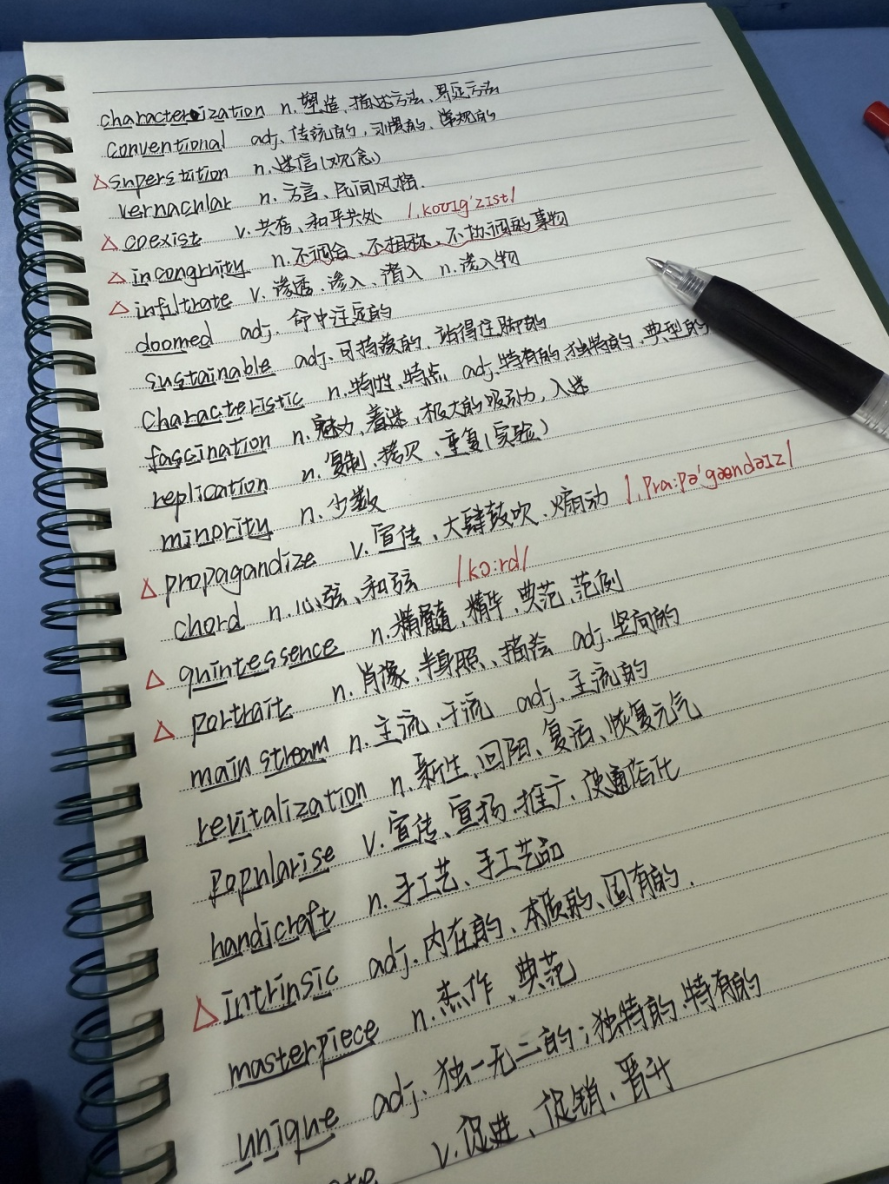 characterization n. 塑造、描述方法、界定方法
conventional adj. 传统的，习惯的、常规的
△superstition n. 迷信(观念)
vernacular n. 方言、民间风格.
△coexist v. 共存、和平共处 /ˌkoʊɪɡˈzɪst/
△incongruity n. 不调合、不相称、不协调的事物
△infiltrate v. 渗透、渗入、潜入 n. 渗入物
doomed adj. 命中注定的
sustainable adj. 可持续的、站得住脚的
characteristic n. 特性、特点 adj. 特有的、独特的、典型的
fascination n. 魅力、着迷、极大的吸引力、入迷
replication n. 复制、拷贝、重复(实验)
minority n. 少数
△propagandize v. 宣传、大肆鼓吹、煽动 /ˌprɑːpəˈɡændaɪz/
chord n. 心弦、和弦 /kɔːrd/
△quintessence n. 精髓、精华、典范、范例
△portrait n. 肖像、半身照、描绘 adj. 竖向的
main stream n. 主流、干流 adj. 主流的
revitalization n. 新生、回阳、复活、恢复元气
popularise v. 宣传、宣扬、推广、使通俗化
handicraft n. 手工艺、手工艺品
△intrinsic adj. 内在的、本质的、固有的.
masterpiece n. 杰作、典范
unique adj. 独一无二的；独特的、特有的
v. 促进、促销、晋升